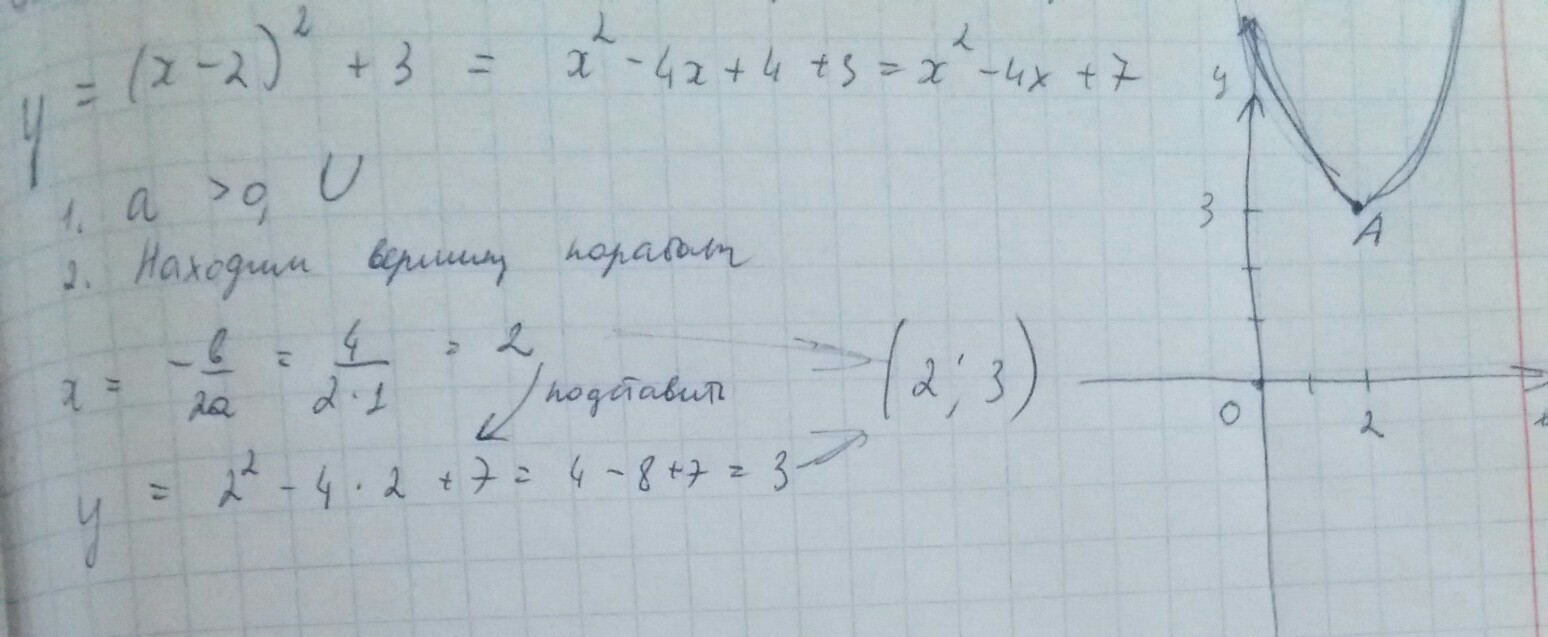 y = (x - 2)² + 3 = x² - 4x + 4 + 3 = x² - 4x + 7
1. a > 0, U
2. Находим вершину параболы
x = -в/2a = 4/2·1 = 2
подставить
(2; 3)
y = 2² - 4 · 2 + 7 = 4 - 8 + 7 = 3
y
3
A
0
2
x